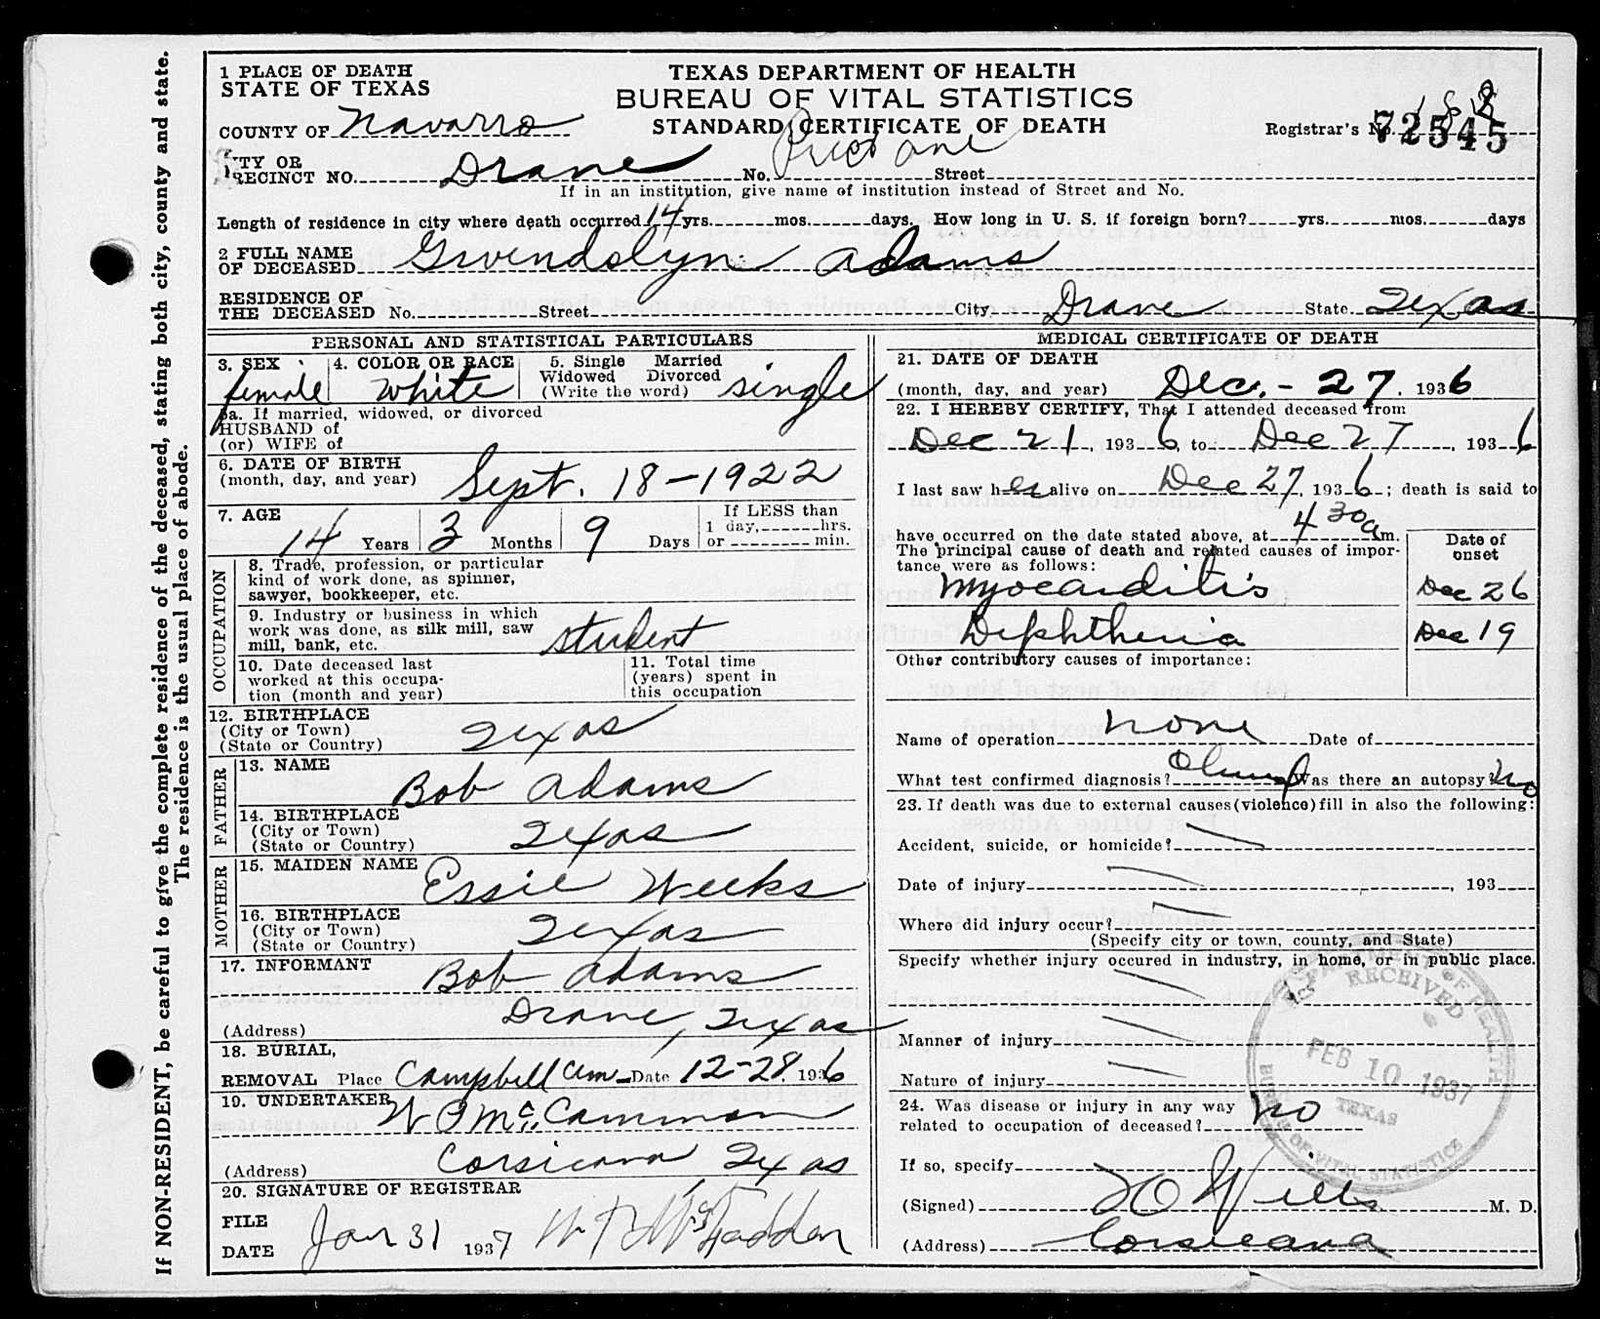 If NON-RESIDENT, be careful to give the complete residence of the deceased, stating both city, county and state.
The residence is the usual place of abode.
1 PLACE OF DEATH
STATE OF TEXAS
TEXAS DEPARTMENT OF HEALTH
BUREAU OF VITAL STATISTICS
STANDARD CERTIFICATE OF DEATH
COUNTY OF Navarro
Registrar's No. 72545
CITY OR
PRECINCT NO. Drane No. Prect one Street
If in an institution, give name of institution instead of Street and No.
Length of residence in city where death occurred 14 yrs. mos. days. How long in U. S. if foreign born? yrs. mos. days
2 FULL NAME
OF DECEASED Gwendolyn Adams
RESIDENCE OF
THE DECEASED No. Street City Drane State. Texas
PERSONAL AND STATISTICAL PARTICULARS
3. SEX female
4. COLOR OR RACE White
5. Single Married
Widowed Divorced
(Write the word) single
5a. If married, widowed, or divorced
HUSBAND of
(or) WIFE of
6. DATE OF BIRTH
(month, day, and year) Sept. 18-1922
7. AGE 14 Years 3 Months 9 Days
If LESS than
1 day, hrs.
or min.
OCCUPATION
8. Trade, profession, or particular
kind of work done, as spinner,
sawyer, bookkeeper, etc.
9. Industry or business in which
work was done, as silk mill, saw
mill, bank, etc. student
10. Date deceased last
worked at this occupa-
tion (month and year)
11. Total time
(years) spent in
this occupation
12. BIRTHPLACE
(City or Town)
(State or Country) Texas
FATHER
13. NAME Bob Adams
14. BIRTHPLACE
(City or Town)
(State or Country) Texas
MOTHER
15. MAIDEN NAME Essie Weeks
16. BIRTHPLACE
(City or Town)
(State or Country) Texas
17. INFORMANT Bob Adams
(Address) Drane, Texas
18. BURIAL,
REMOVAL Place Campbell Cem Date 12-28, 1936
19. UNDERTAKER W P McCammon
(Address) Corsicana Texas
20. SIGNATURE OF REGISTRAR
FILE
DATE Jan 31 1937 McFadden
MEDICAL CERTIFICATE OF DEATH
21. DATE OF DEATH
(month, day, and year) Dec. - 27, 1936
22. I HEREBY CERTIFY, That I attended deceased from
Dec 21, 1936, to Dec 27, 1936
I last saw her alive on Dec 27, 1936; death is said to
have occurred on the date stated above, at 4 30 a m.
The principal cause of death and related causes of impor-
tance were as follows:
Date of
onset
Myocarditis Dec 26
Diphtheria Dec 19
Other contributory causes of importance:
Name of operation none Date of
What test confirmed diagnosis? Was there an autopsy? No
23. If death was due to external causes (violence) fill in also the following:
Accident, suicide, or homicide?
Date of injury , 193
Where did injury occur?
(Specify city or town, county, and State)
Specify whether injury occured in industry, in home, or in public place.
Manner of injury
Nature of injury
24. Was disease or injury in any way
related to occupation of deceased? no
If so, specify
(Signed) Wills M. D.
(Address) Corsicana
DEPARTMENT OF HEALTH
RECEIVED
FEB 10 1937
TEXAS
BUREAU OF VITAL STATISTICS